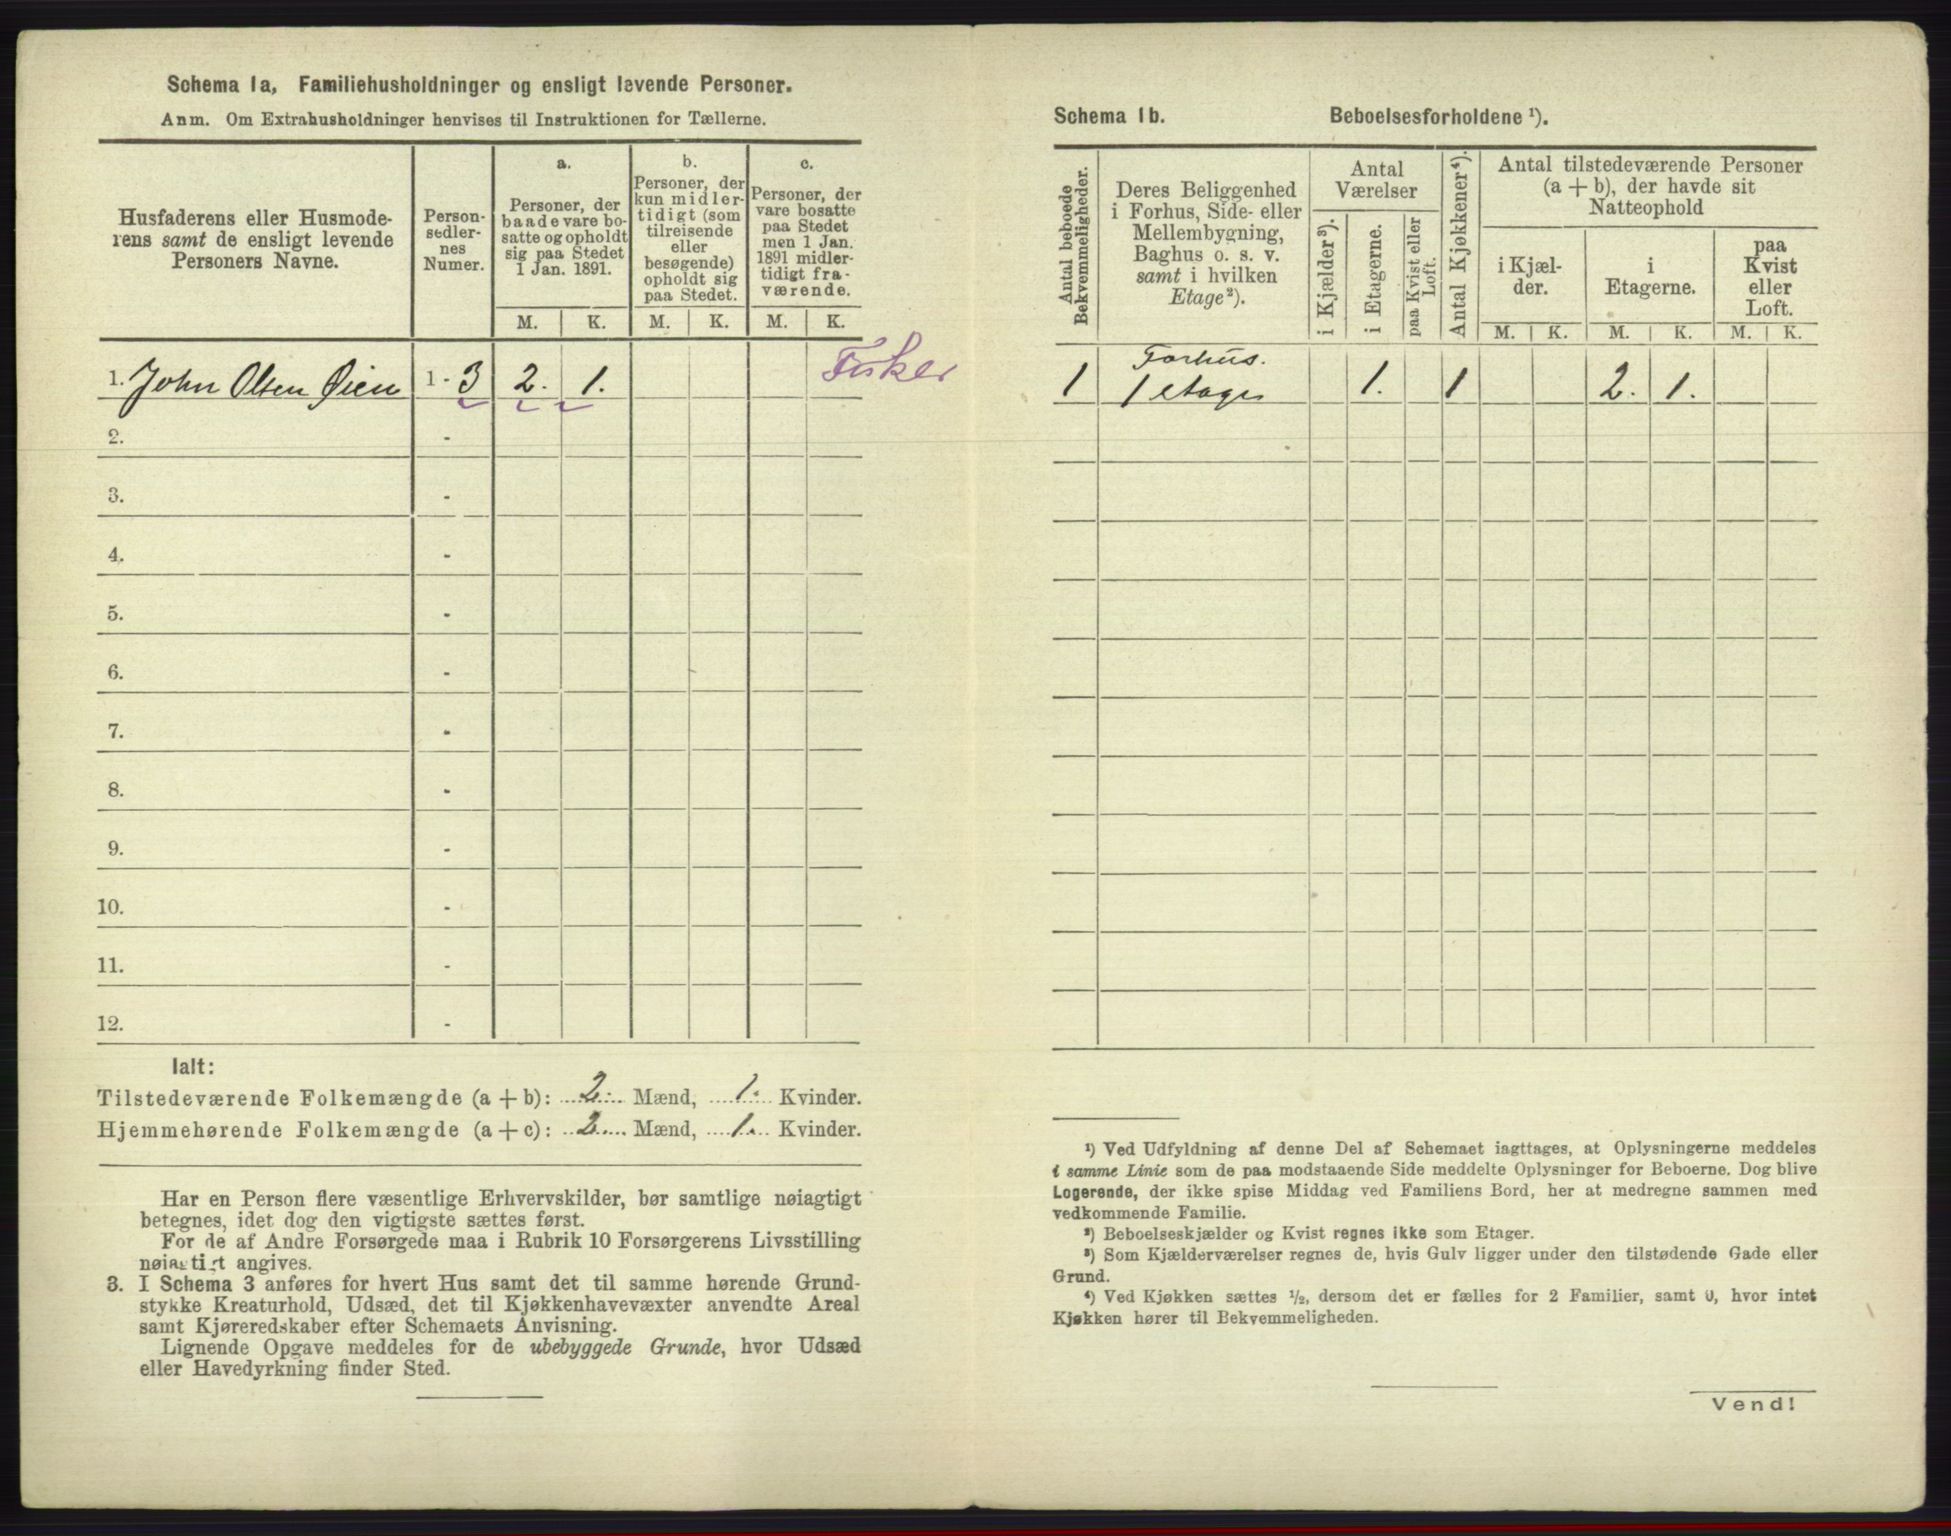 Schema 1a, Familiehusholdninger og ensligt levende Personer.
Anm. Om Extrahusholdninger henvises til Instruktionen for Tællerne.
Husfaderens eller Husmode-
rens samt de ensligt levende
Personers Navne.
Person-
sedler-
nes
Numer.
a.
Personer, der
baade vare bo-
satte og opholdt
sig paa Stedet
1 Jan. 1891.
b.
Personer, der
kun midler-
tidigt (som
tilreisende
eller
besøgende)
opholdt sig
paa Stedet.
c.
Personer, der
vare bosatte
paa Stedet
men 1 Jan.
1891 midler-
tidigt fra-
værende.
M. K. M. K. M. K.
1. John Olsen Øien 1 - 3 2. 1. Fisker
2. -
3. -
4. -
5. -
6. -
7. -
8. -
9. -
10. -
11. -
12. -
Ialt:
Tilstedeværende Folkemængde (a + b): 2. Mænd, 1. Kvinder.
Hjemmehørende Folkemængde (a + c): 2 Mænd, 1. Kvinder.
Har en Person flere væsentlige Erhvervskilder, bør samtlige nøiagtigt
betegnes, idet dog den vigtigste sættes først.
For de af Andre Forsørgede maa i Rubrik 10 Forsørgerens Livsstilling
nøiagtigt angives.
3. I Schema 3 anføres for hvert Hus samt det til samme hørende Grund-
stykke Kreaturhold, Udsæd, det til Kjøkkenhavevæxter anvendte Areal
samt Kjøreredskaber efter Schemaets Anvisning.
Lignende Opgave meddeles for de ubebyggede Grunde, hvor Udsæd
eller Havedyrkning finder Sted.
Schema 1b. Beboelsesforholdene ¹).
Antal beboede
Bekvemmeligheder.
Deres Beliggenhed
i Forhus, Side- eller
Mellembygning,
Baghus o. s. v.
samt i hvilken
Etage ²).
Antal
Værelser
i Kjælder ³).
i Etagerne.
paa Kvist eller
Loft.
Antal Kjøkkener ⁴).
Antal tilstedeværende Personer
(a + b), der havde sit
Natteophold
i Kjæl-
der.
i
Etagerne.
paa
Kvist
eller
Loft.
M. K. M. K. M. K.
Forhus.
1 1 etage 1. 1 2. 1.
¹) Ved Udfyldning af denne Del af Schemaet iagttages, at Oplysningerne meddeles
i samme Linie som de paa modstaaende Side meddelte Oplysninger for Beboerne. Dog blive
Logerende, der ikke spise Middag ved Familiens Bord, her at medregne sammen med
vedkommende Familie.
²) Beboelseskjælder og Kvist regnes ikke som Etager.
³) Som Kjælderværelser regnes de, hvis Gulv ligger under den tilstødende Gade eller
Grund.
⁴) Ved Kjøkken sættes ½, dersom det er fælles for 2 Familier, samt 0, hvor intet
Kjøkken hører til Bekvemmeligheden.
Vend!